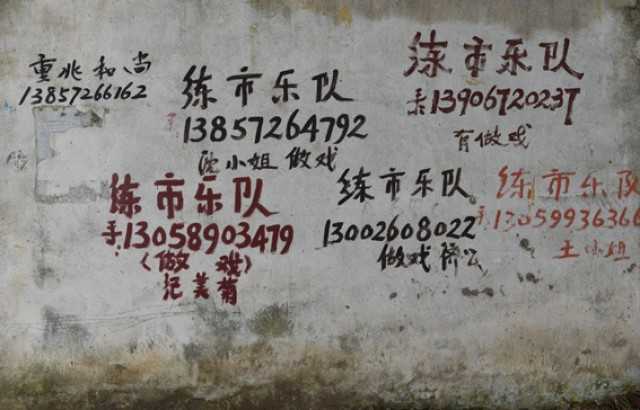 重兆和尚
13857266162
练市乐队
13857264792
沈小姐做戏
练市乐队
手13906720237
有做戏
练市乐队
手13058903479
(做戏)
纪美菊
练市乐队
13002608022
做戏
练市乐队
手1305993636
王小姐